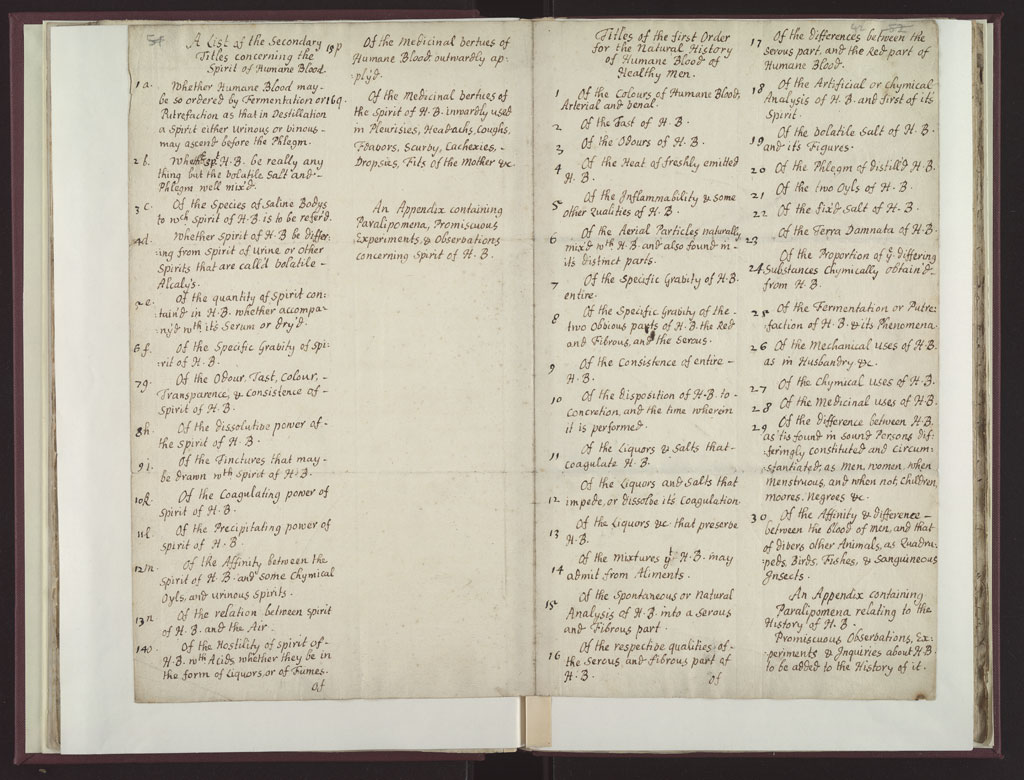 A List of the Secondary
Titles concerning the
Spirit of Humane Blood.
1 a. Whether Humane Blood may-
be so ordered by Fermentation or
Putrefaction as that in Destillation
a Spirit either Urinous or vinous-
may ascend before the Phlegm.
2 b. Whether spt H.B. be really any
thing but the volatile Salt and-
Phlegm well mix'd.
3 c. Of the Species of Saline Bodys
to wch spirit of H.B. is to be refer'd.
4d. Whether Spirit of H.B. be differ:
:ing from Spirit of Urine or other
Spirits that are call'd volatile-
Alcaly's.
5 e. Of the quantity of Spirit con:
:tain'd in H.B. whether accompa-
:ny'd wth its Serum or dry'd.
6 f. Of the Specific Gravity of Spi:
:rit of H.B.
7g. Of the Odour, Tast, Colour,-
Transparence, & Consistence of-
Spirit of H.B.
8h. Of the dissolutive power of-
the spirit of H.B.
9 i. Of the Tinctures that may-
be drawn wth Spirit of H.B.
10k. Of the Coagulating power of
Spirit of H.B.
11l. Of the Precipitating power of
spirit of H.B.
12m. Of the Affinity between the
Spirit of H.B. and some Chymical
Oyls, and Urinous Spirits.
13n Of the relation between spirit
of H.B. and the Air.
14o. Of the Hostility of spirit of-
H.B. wth Acids whether they be in
the form of Liquors, or of Fumes.
Of
15p Of the Medicinal vertues of
Humane Blood, outwardly ap-
:ply'd.
16q. Of the Medicinal vertues of
the Spirit of H.B. inwardly used
in Pleurisies, Headachs, Coughs,
Feavors, Scurvy, Cachexies,-
Dropsies, Fits of the Mother &c.
An Appendix containing
Paralipomena, Promiscuous
Experiments, & Observations
concerning Spirit of H.B.
Titles of the first Order
for the Natural History
of Humane Blood of
Healthy Men.
1 Of the Colours of Humane Blood,
Arterial and Venal.
2 Of the Tast of H.B.
3 Of the Odours of H.B.
4 Of the Heat of freshly emitted
H.B.
5 Of the Inflammability & some
other Qualities of H.B.
6 Of the Aerial Particles naturally
mix'd wth H.B. and also found in-
its distinct parts.
7 Of the Specific Gravity of H.B.
entire.
8 Of the Specific Gravity of the-
two Obvious parts of H.B. the Red
and Fibrous, and the Serous.
9 Of the Consistence of entire-
H.B.
10 Of the disposition of H.B. to-
Concretion, and the time wherein
it is performed.
11 Of the Liquors & Salts that-
coagulate H.B.
12 Of the Liquors and Salts that
impede, or dissolve its Coagulation.
13 Of the Liquors &c. that preserve
H.B.
14 Of the mixtures yt H.B. may
admit from Aliments.
15 Of the Spontaneous or Natural
Analysis of H.B. into a Serous
and Fibrous part.
16 Of the respective qualities of-
the Serous and fibrous part of
H.B.
Of
17 Of the differences between the
Serous part, and the Red part of
Humane Blood.
18 Of the Artificial or chymical
Analysis of H.B. and first of its
Spirit.
19 Of the Volatile Salt of H.B.
and its Figures.
20 Of the Phlegm of distill'd H.B.
21 Of the two Oyls of H.B.
22 Of the fix'd Salt of H.B.
23 Of the Terra Damnata of H.B.
24 Of the Proportion of ye differing
Substances Chymically obtain'd-
from H.B.
25 Of the Fermentation or Putre:
:faction of H.B. & its Phenomena.
26 Of the Mechanical Uses of H.B.
as in Husbandry &c.
27 Of the Chymical Uses of H.B.
28 Of the Medicinal Uses of H.B.
29 Of the difference between H.B.
as 'tis found in sound Persons dif:
:feringly constituted and circum:
:stantiated, as Men, women, when
menstruous, and when not, Children,
moores, Negroes &c.
30 Of the Affinity & difference-
between the blood of men, and that
of divers other Animals, as Quadru:
:peds, Birds, Fishes, & Sanguineous
Insects.
An Appendix containing
Paralipomena relating to the
History of H.B.
Promiscuous Observations, Ex:
:periments & Inquiries about H.B.
to be added to the History of it.